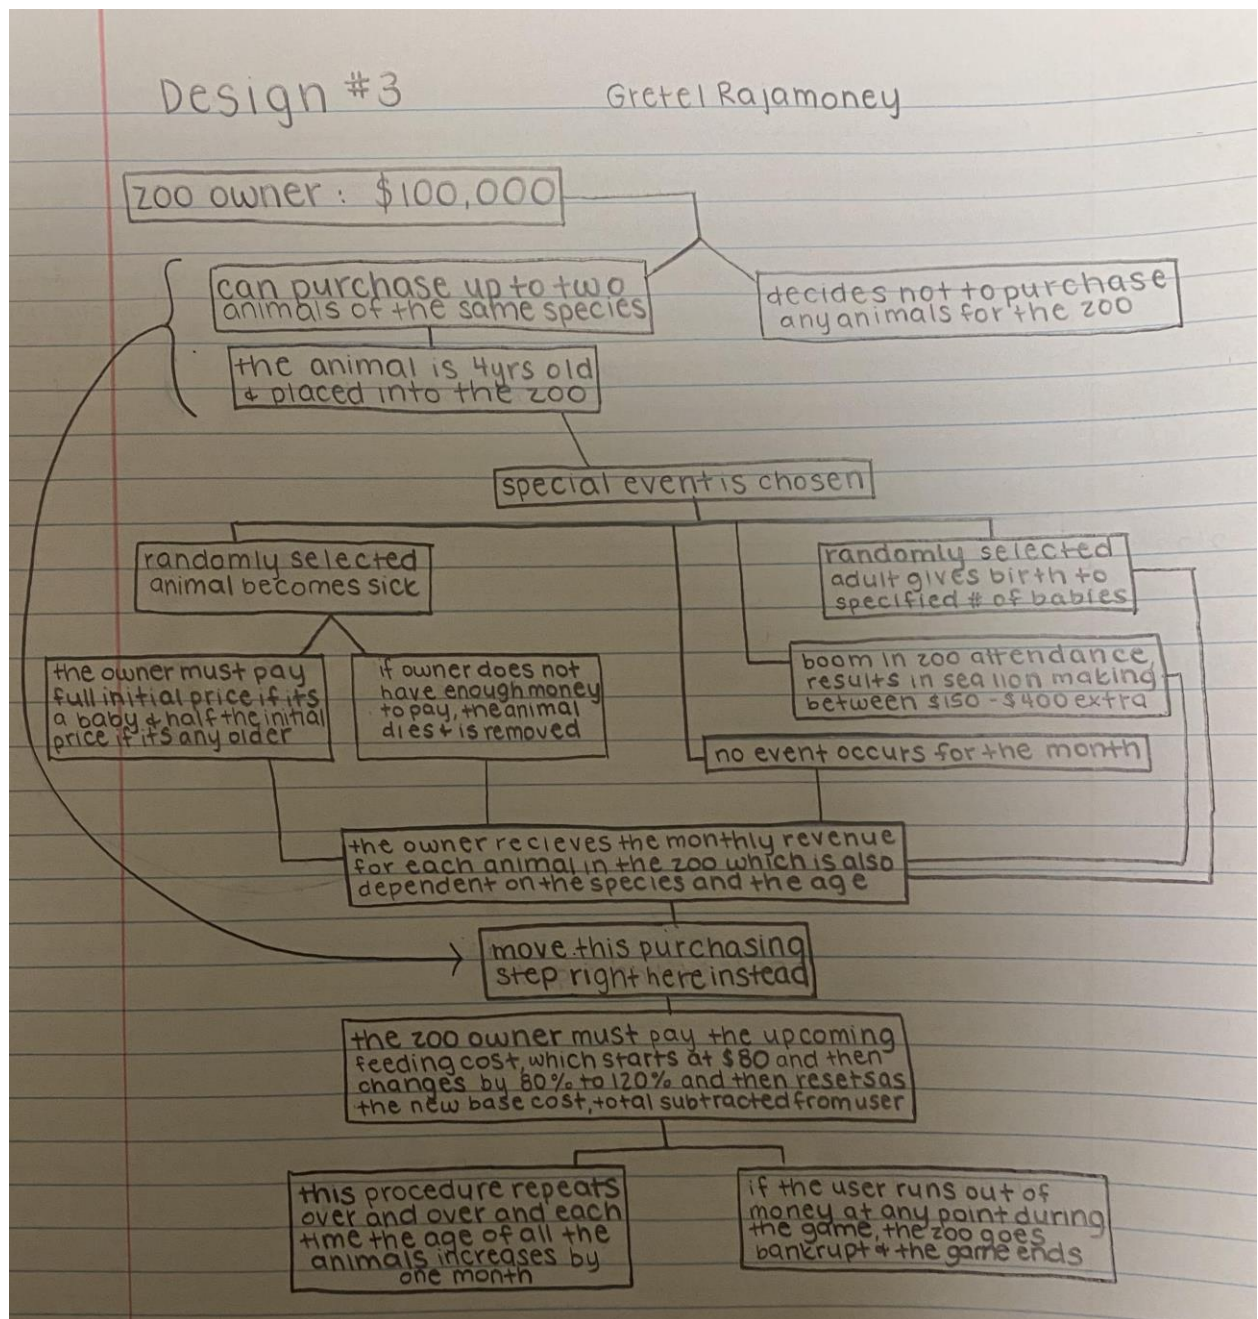 Design #3
Gretel Rajamoney
zoo owner: $100,000
can purchase up to two
animals of the same species
decides not to purchase
any animals for the zoo
the animal is 4yrs old
& placed into the zoo
special event is chosen
randomly selected
animal becomes sick
randomly selected
adult gives birth to
specified # of babies
the owner must pay
full initial price if its
a baby & half the initial
price if its any older
if owner does not
have enough money
to pay, the animal
dies & is removed
boom in zoo attendance,
results in sea lion making
between $150 - $400 extra
no event occurs for the month
the owner recieves the monthly revenue
for each animal in the zoo which is also
dependent on the species and the age
move this purchasing
step right here instead
the zoo owner must pay the upcoming
feeding cost, which starts at $80 and then
changes by 80% to 120% and then resets as
the new base cost, total subtracted from user
this procedure repeats
over and over and each
time the age of all the
animals increases by
one month
if the user runs out of
money at any point during
the game, the zoo goes
bankrupt & the game ends